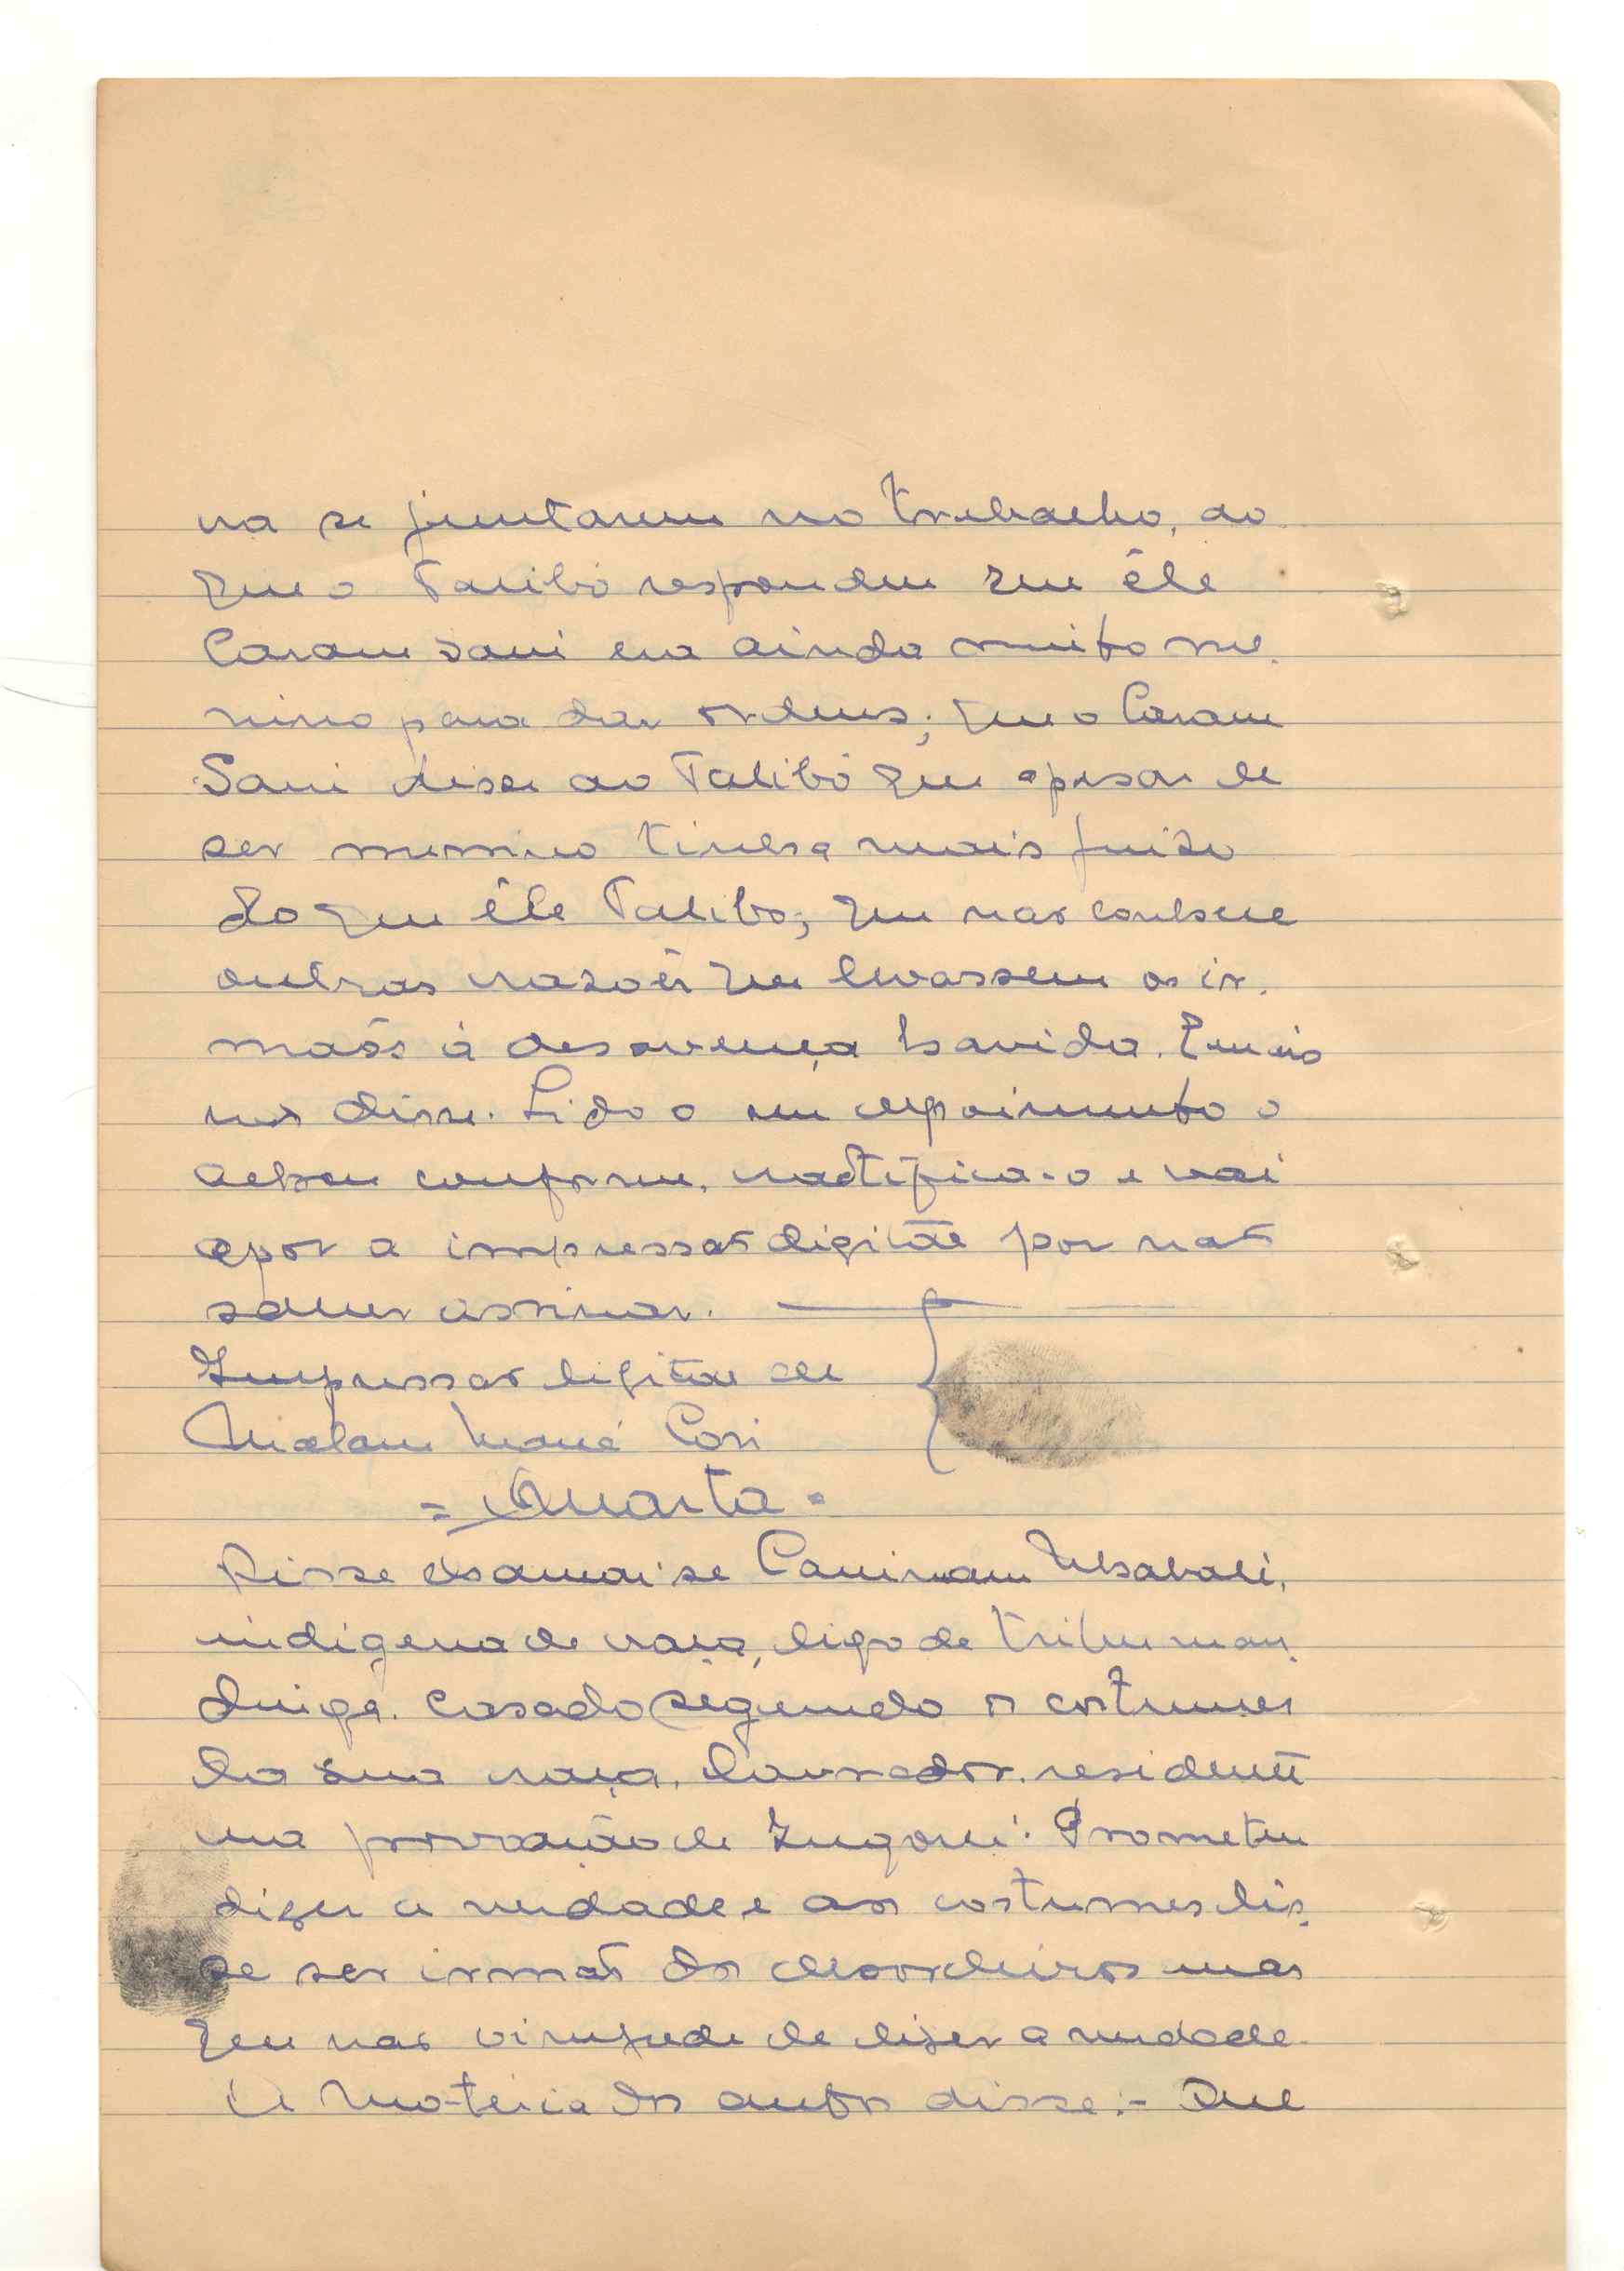 na se juntarem no trabalho, ao
que o Talibó respondeu que êle
Caram Sani era ainda muito me-
nino para dar ordens; que o Caram
Sani disse ao Talibó que apesar de
ser menino tinha mais juizo
do que êle Talibo; que não conhece
outras razões que levassem os ir-
mãos á desavença havida. E mais
não disse. Lido o seu depoimento o
achou conforme, ractifica-o e vai
apor a impressão digital por não
saber assinar.
Impressão digital de
Malam Mané Cori
= Quarta =
Disse chamar-se Caniram
indigena de raça, digo de tribu man-
dinga. Casado segundo os costumes
da sua raça, lavrador, residente
na povoação de Prometeu
dizer a verdade e aos costumes dis-
se ser irmão dos desordeiros mas
que não impede de dizer a verdade.
A materia dos autos disse:- Que